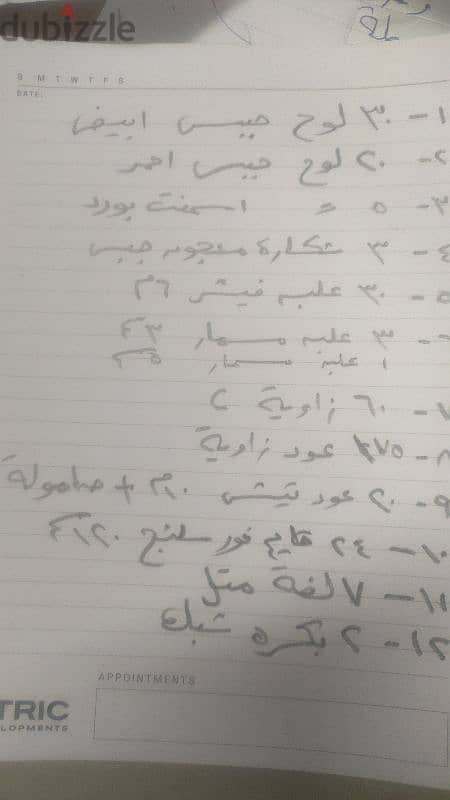 dubizzle
S M T W T F S
DATE:
١- ٣٠ لوح جبس ابيض
٢- ٢٠ لوح جبس احمر
٣- ٥ = اسمنت بورد
٤- ٣ شكارة معجون جبس
٥- ٣٠ علبه فيشر ٦م
٦- ٣ علبه مسمار ٣سم
١ علبة مسمار
٧- ٦٠ زاوية
٨- ٧٥ عود زاوية
٩- ٢٠ عود تيش ١٠م + صامولة
١٠- ٢٤ فور سلنج
١١- ٧ لفة متل
١٢- ٢ بكره شبك
APPOINTMENTS
TRIC
LOPMENTS